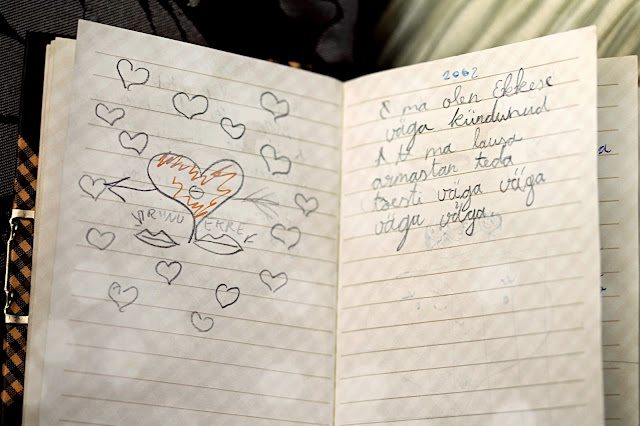 RIINU EKKE
2002
ma olen Ekkese
väga kiindunud
ma lausa
armastan teda
tõesti väga väga
väga väga.